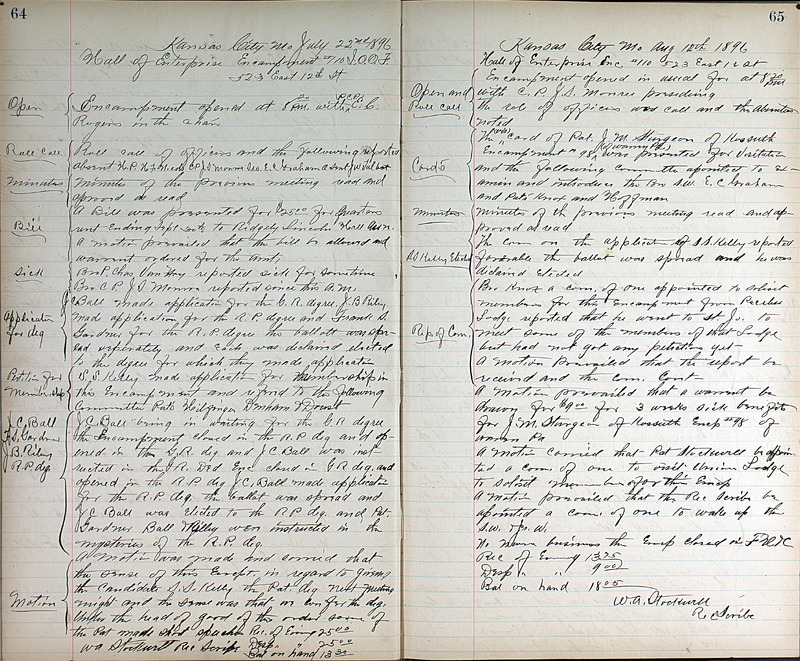 64
Kansas City Mo July 22nd 1896
Hall of Enterprise Encampment #110 I.O.O.F
523 East 12th St
Open
Encampment opened at 8 P.M. with P.C.P. E.C.
Rogers in the chair
Roll Call
Roll call of officers and the following reported
absent
Minutes
Minutes of the previous meeting read and
aproved as read
Bill
A Bill was presented for $25.00 for Quarters
rent Ending Sept 1st to Ridgely Lincoln Hall Assn.
A motion prevailed that the bill be allowed and
warrant ordered for the amt.
Sick
Bro P. Chas reported sick for sometime
Bro C.P. J.S. Monroe reported since this A.M.
Application for deg
J.C. Ball made application for the G.R. degree, J.B. Riley
made application for the R.P. degree and Frank S.
Gardner for the R.P. degree the ballott was spre-
ad seperately and Each was declared elected
to the degree for which they made application
Petition for Membership
S.S. Kelly made application for membership in
this Encampment and referd to the following
Committee Pats Heilfinger Denham &
J.C. Ball
F.S. Gardner
J.B. Riley
R.P. deg
J.C. Ball being in waiting for the G.R. degree
the Encampment closed in the R.P. deg and op-
ened in the G.R. deg and J.C. Ball was inst-
ructed in the G.R. Deg Enc closed in G.R. deg and
opened in the R.P. deg J.C. Ball made application
for the R.P. deg the ballot was spread and
J.C. Ball was elected to the R.P. deg. and Pat.
Gardner Ball & Riley were instructed in the
mysteries of the R.P. deg.
Motion
A Motion was made and carried that
the sense of this Encpt in regard to giving
the Candidate S.S. Kelly the Pat. deg next meeting
night and the sense was that we confer the deg.
Under the head of good of the order some of
the Pat made short speeches Rec. of Evening 25.00
W.A. Stockwell Rec Scribe Desp " " 25.00
Bal on hand 13
65
Kansas City Mo Aug 12th 1896
Hall of Enterprise Enc #110 523 East 12 St
Open and Roll Call
Encampment opened in usual for at 8 P.M.
with C.P. J.S. Monroe presiding
the role of officers was call and the Absentees
noted
Cards
The card of Pat. J.M. Sturgeon of Kossuth
Encampment #98 was presented for Visitation
and the following Committe apointed to ex-
amin and introduce the Bro S.W. E.C. Graham
and Pats Knox and Hoffman
Minutes
Minutes of the previous meeting read and ap-
proved as read
S.S. Kelly Elected
The Com on the application of S.S. Kelly reported
favorable the ballot was spread and he was
declared Elected
Rep. of Com.
Bro Knox a com. of one appointed to solisit
members for this Encampment from Peerless
Lodge reported that he went to St Jo. to
meet some of the members of that Lodge
but had not got any petition yet
A motion Prevailed that the report be
received and the Com. Cont
A Motion prevailed that a warrant be
drawn for $9.00 for 3 weeks sick benefits
for J.M. Sturgeon of Kossuth Encp #98 of
Pa
A Motion carried that Pat Stockwell be appoin-
ted a com. of one to visit Union Lodge
to solisit members for this Encp
A Motion prevailed that the Rec Scribe be
apointed a com. of one to wake up the
S.W. & J.W.
No more business the Encp closed in F.H.&C
Rec of Evening 13.75
Desp " " 9.00
Bal on hand 18.05
W.A. Stockwell
Rec Scribe